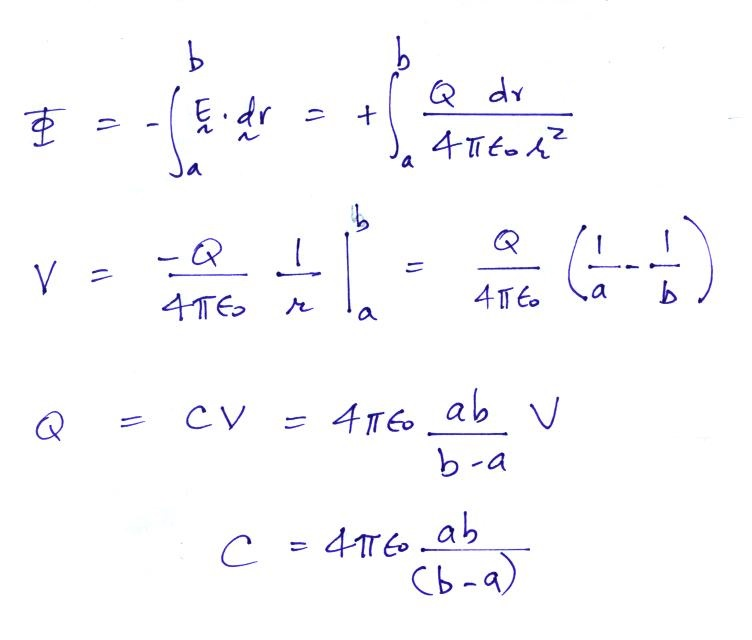 Φ = -∫_a^b Ḛ · d̰r = +∫_a^b Q dr / 4πε₀ r²
V = -Q / 4πε₀ 1 / r |_a^b = Q / 4πε₀ (1/a - 1/b)
Q = CV = 4πε₀ ab / b-a V
C = 4πε₀ ab / (b-a)